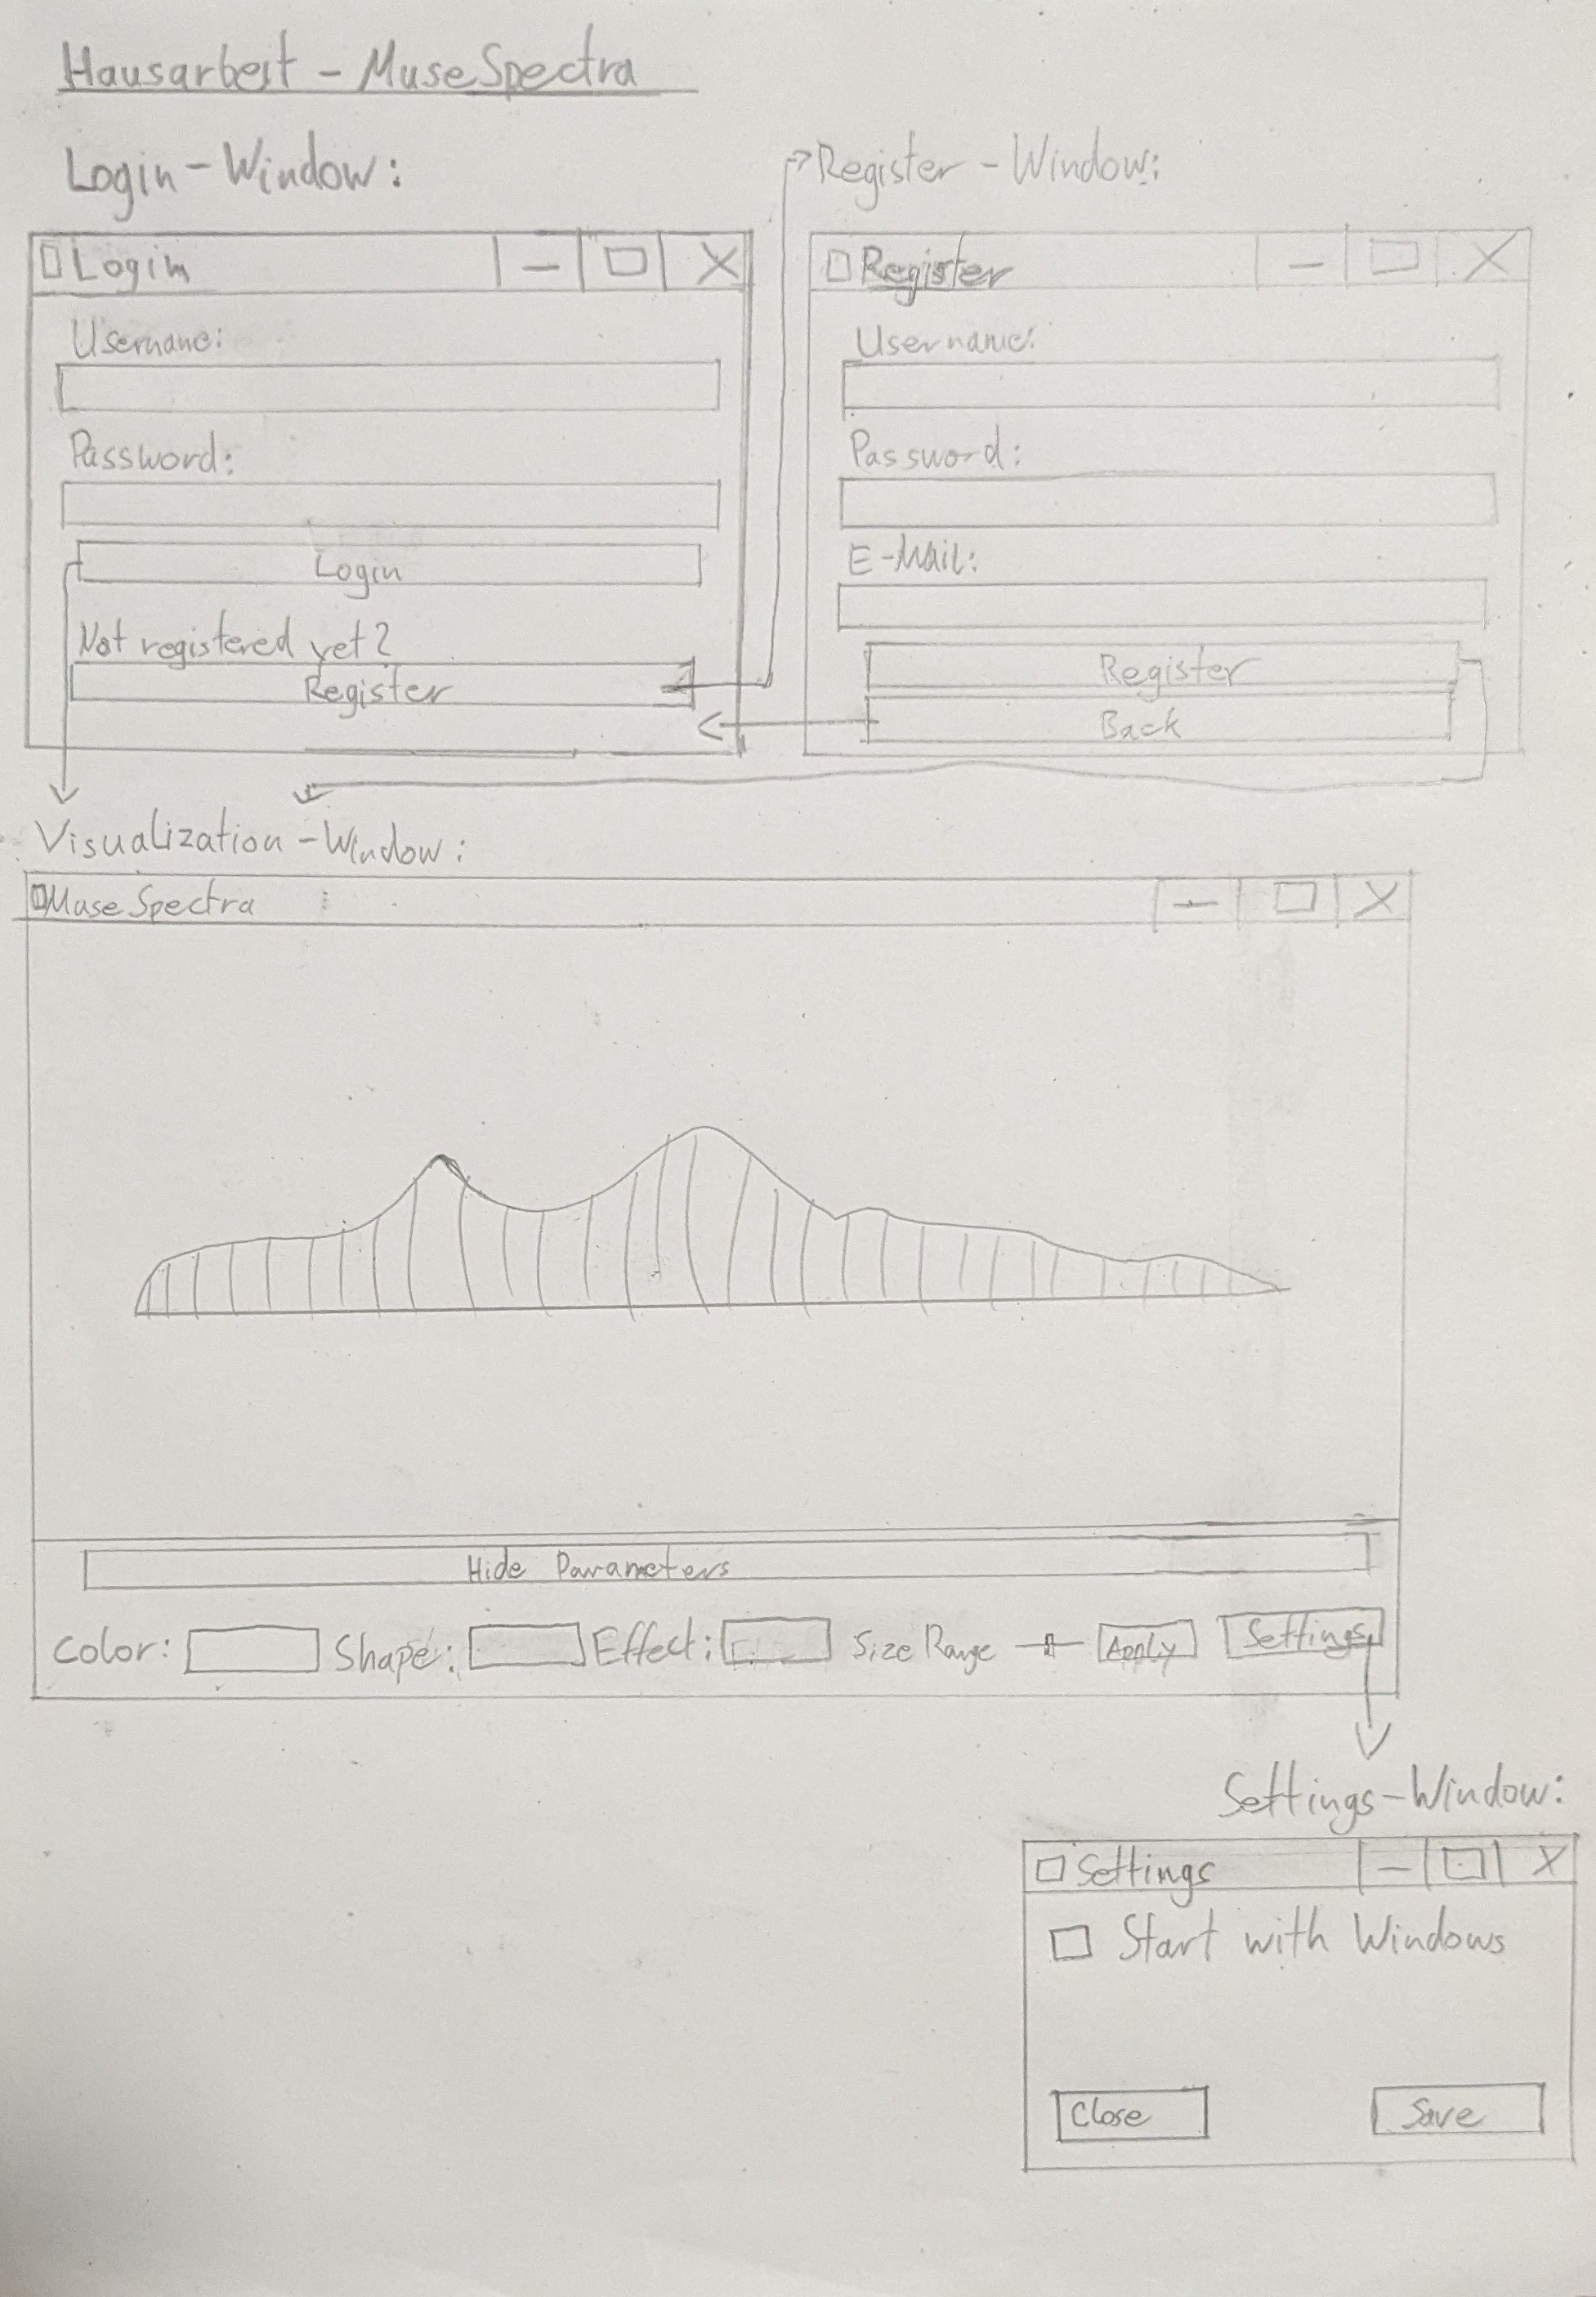 Hausarbeit - MuseSpectra
Login-Window:
Login
Username:
Password:
Login
Not registered yet?
Register
Register-Window:
Register
Username:
Password:
E-Mail:
Register
Back
Visualization-Window:
MuseSpectra
Hide Parameters
Color: Shape: Effect: Size Range Apply Settings
Settings-Window:
Settings
Start with Windows
Close Save